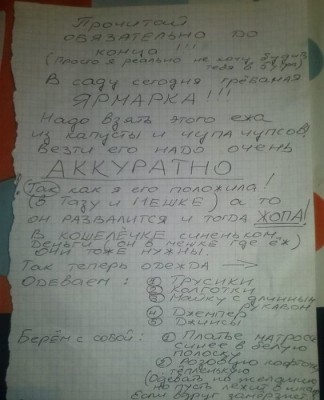 Прочитай
ОБЯЗАТЕЛЬНО ДО
конца !!!
(Просто я реально не хочу будить
тебя в 5 утра)
В саду сегодня грёбаная
ЯРМАРКА!!!
Надо взять этого ежа
из капусты и чупа чупсов!
Везти его надо очень
АККУРАТНО
!(Так как я его положила!
(В тазу и мешке) а то
он развалится и тогда ЖОПА!
В кошелёчке синеньком
деньги (он в мешке где ёж)
они тоже нужны.
Так теперь одежда →
Одеваем: ① Трусики
② Колготки
③ Майку с длинным
рукавом
④ Джемпер
⑤ Джинсы
Берём с собой: ① Платье матроса
синее в белую
полоску
② Розовую кофточку
тёпленькую
(Одевать не желательно
но пусть лежит в шкафу
Если вдруг замёрзнет)